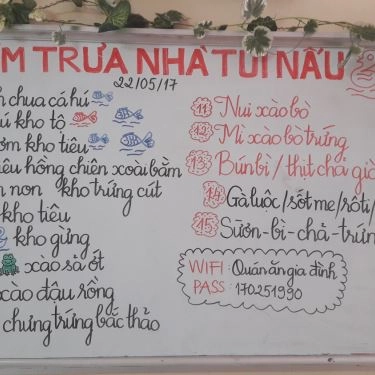 M TRƯA NHÀ TUI NẤU
22/05/17
chua cá hú
ú kho tộ
ơm kho tiêu
êu hồng chiên xoài bằm
non kho trứng cút
kho tiêu
kho gừng
xào sả ớt
xào đậu rồng
chưng trứng bắc thảo
11 Nui xào bò
12 Mì xào bò trứng
13 Bún bì / thịt chả giò
14 Gà luộc / sốt me / rôti /
15 Sườn - bì - chả - trứn
WIFI : Quán ăn gia đình
PASS : 170251990